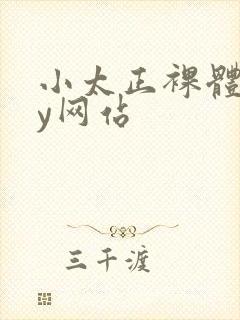 小太正裸體
y网佔
三千渡